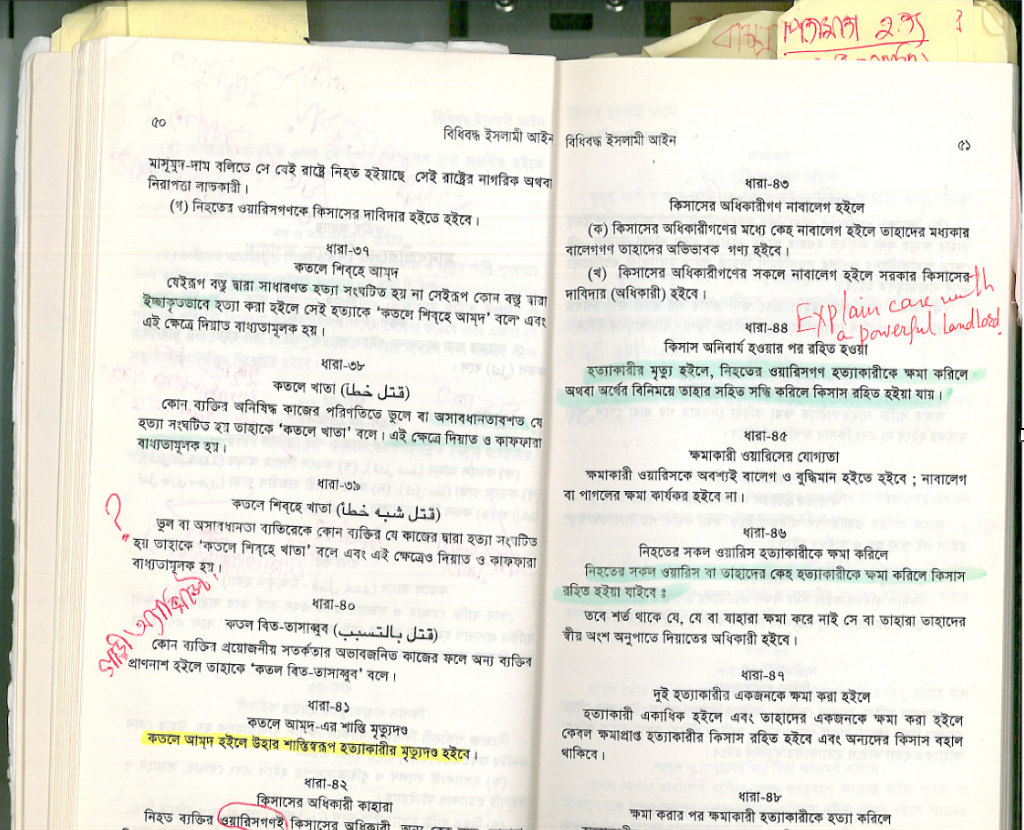 ৫০
বিধিবদ্ধ ইসলামী আইন
মাসূমুদ-দাম বলিতে সে যেই রাষ্ট্রে নিহত হইয়াছে সেই রাষ্ট্রের নাগরিক অথবা
নিরাপত্তা লাভকারী।
(গ) নিহতের ওয়ারিসগণকে কিসাসের দাবিদার হইতে হইবে।
ধারা-৩৭
কতলে শিব্‌হে আম্‌দ
যেইরূপ বস্তু দ্বারা সাধারণত হত্যা সংঘটিত হয় না সেইরূপ কোন বস্তু দ্বারা
ইচ্ছাকৃতভাবে হত্যা করা হইলে সেই হত্যাকে ‘কতলে শিব্‌হে আম্‌দ’ বলে এবং
এই ক্ষেত্রে দিয়াত বাধ্যতামূলক হয়।
ধারা-৩৮
কতলে খাতা (قتل خطأ)
কোন ব্যক্তির অনিষিদ্ধ কাজের পরিণতিতে ভুলে বা অসাবধানতাবশত যে
হত্যা সংঘটিত হয় তাহাকে ‘কতলে খাতা’ বলে। এই ক্ষেত্রে দিয়াত ও কাফফারা
বাধ্যতামূলক হয়।
ধারা-৩৯
কতলে শিব্‌হে খাতা (قتل شبه خطأ)
ভুল বা অসাবধানতা ব্যতিরেকে কোন ব্যক্তির যে কাজের দ্বারা হত্যা সংঘটিত
হয় তাহাকে ‘কতলে শিব্‌হে খাতা’ বলে এবং এই ক্ষেত্রেও দিয়াত ও কাফফারা
বাধ্যতামূলক হয়।
?
গাড়ী অ্যাক্সিডেন্ট?
ধারা-৪০
কতল বিত-তাসাব্বুব (قتل بالتسبب)
কোন ব্যক্তির প্রয়োজনীয় সতর্কতার অভাবজনিত কাজের ফলে অন্য ব্যক্তির
প্রাণনাশ হইলে তাহাকে ‘কতল বিত-তাসাব্বুব’ বলে।
ধারা-৪১
কতলে আম্‌দ-এর শাস্তি মৃত্যুদণ্ড
কতলে আম্‌দ হইলে উহার শাস্তিস্বরূপ হত্যাকারীর মৃত্যুদণ্ড হইবে।
ধারা-৪২
কিসাসের অধিকারী কাহারা
নিহত ব্যক্তির ওয়ারিসগণই কিসাসের অধিকারী
পিতামাতা হত্যা ?
বিধিবদ্ধ ইসলামী আইন
৫১
ধারা-৪৩
কিসাসের অধিকারীগণ নাবালেগ হইলে
(ক) কিসাসের অধিকারীগণের মধ্যে কেহ নাবালেগ হইলে তাহাদের মধ্যকার
বালেগগণ তাহাদের অভিভাবক গণ্য হইবে।
(খ) কিসাসের অধিকারীগণের সকলে নাবালেগ হইলে সরকার কিসাসের
দাবিদার (অধিকারী) হইবে।
Explain care with
a powerful landlord.
ধারা-৪৪
কিসাস অনিবার্য হওয়ার পর রহিত হওয়া
হত্যাকারীর মৃত্যু হইলে, নিহতের ওয়ারিসগণ হত্যাকারীকে ক্ষমা করিলে
অথবা অর্থের বিনিময়ে তাহার সহিত সন্ধি করিলে কিসাস রহিত হইয়া যায়।
ধারা-৪৫
ক্ষমাকারী ওয়ারিসের যোগ্যতা
ক্ষমাকারী ওয়ারিসকে অবশ্যই বালেগ ও বুদ্ধিমান হইতে হইবে ; নাবালেগ
বা পাগলের ক্ষমা কার্যকর হইবে না।
ধারা-৪৬
নিহতের সকল ওয়ারিস হত্যাকারীকে ক্ষমা করিলে
নিহতের সকল ওয়ারিস বা তাহাদের কেহ হত্যাকারীকে ক্ষমা করিলে কিসাস
রহিত হইয়া যাইবে ঃ
তবে শর্ত থাকে যে, যে বা যাহারা ক্ষমা করে নাই সে বা তাহারা তাহাদের
স্বীয় অংশ অনুপাতে দিয়াতের অধিকারী হইবে।
ধারা-৪৭
দুই হত্যাকারীর একজনকে ক্ষমা করা হইলে
হত্যাকারী একাধিক হইলে এবং তাহাদের একজনকে ক্ষমা করা হইলে
কেবল ক্ষমাপ্রাপ্ত হত্যাকারীর কিসাস রহিত হইবে এবং অন্যদের কিসাস বহাল
থাকিবে।
ধারা-৪৮
ক্ষমা করার পর ক্ষমাকারী হত্যাকারীকে হত্যা করিলে